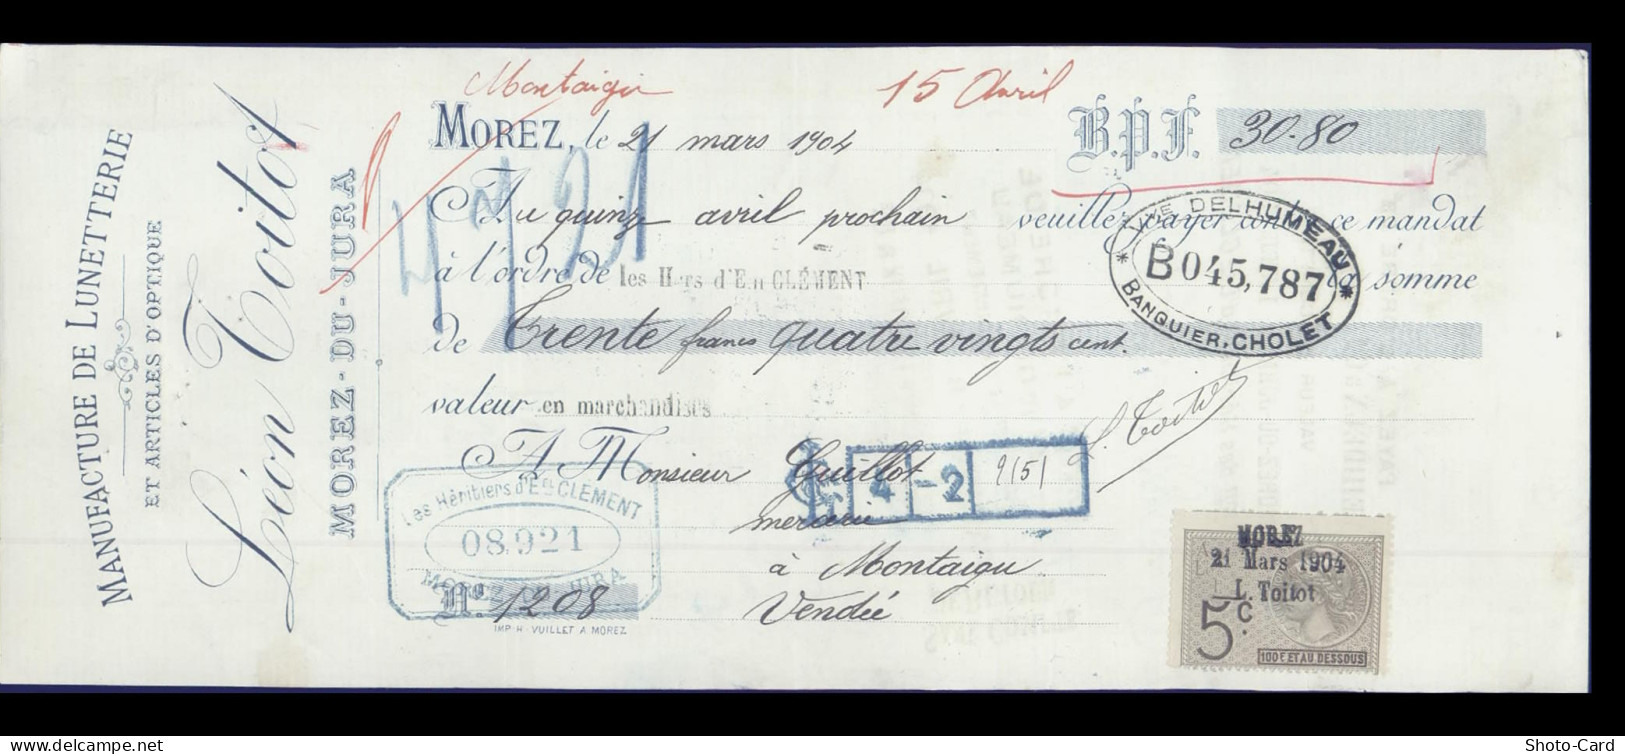 MANUFACTURE DE LUNETTERIE
ET ARTICLES D'OPTIQUE
Léon Toitot
MOREZ-DU-JURA
Montaigu
15 Avril
MOREZ, le 21 mars 1904
B.P.F. 30-80
Au quinz avril prochain veuillez payer contre ce mandat
à l'ordre de les H-rs d'En CLÉMENT la somme
DELHUMEAU
* B045,787 *
BANQUIER, CHOLET
de Trente francs quatre vingts cent.
valeur en marchandises
L. Toitot
A Monsieur Guillot
4 - 2
mercerie
à Montaigu
Vendée
Les Héritiers d'En CLEMENT
08,921
No. 1208
IMP. H. VUILLET A MOREZ
MOREZ
21 Mars 1904
L. Toitot
5 c.
100F ET AU DESSOUS
www.delcampe.net
Shoto-Card